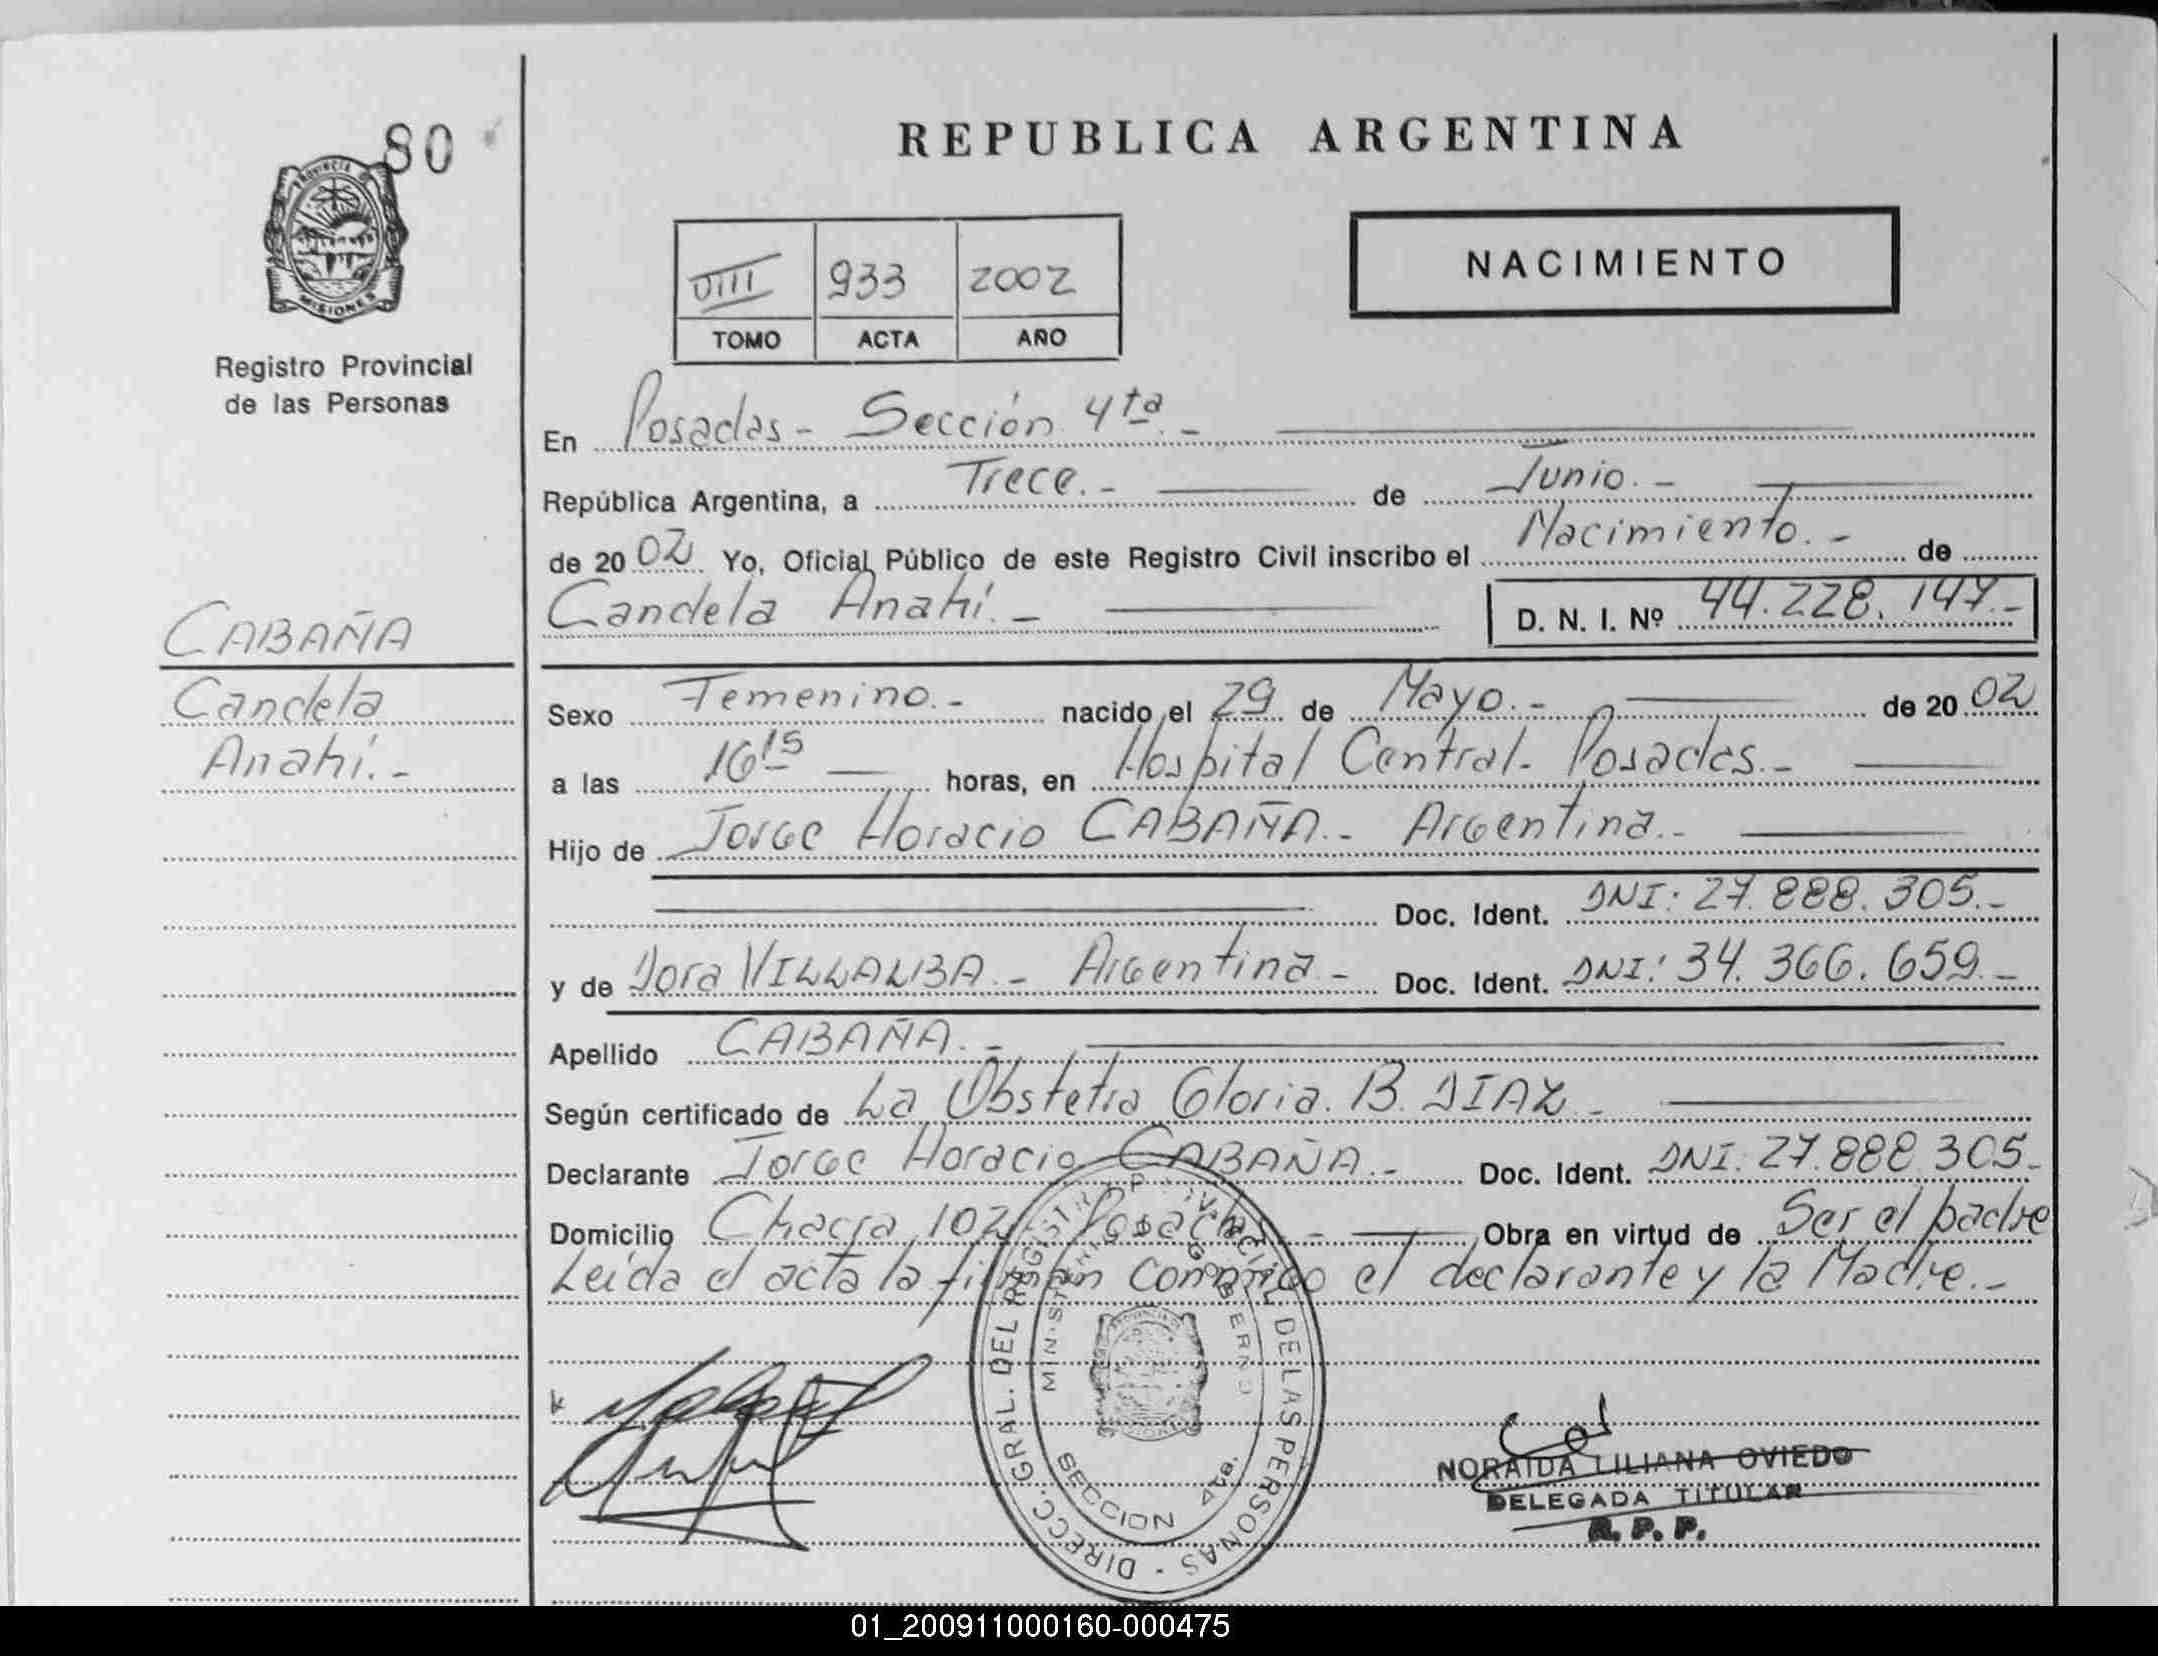 80
PROVINCIA DE
MISIONES
Registro Provincial
de las Personas
CABAÑA
Candela
Anahí.-
REPUBLICA ARGENTINA
VIII 933 2002
TOMO ACTA AÑO
NACIMIENTO
En Posadas- Sección 4ta.-
República Argentina, a Trece.- de Junio.-
de 2002 Yo, Oficial Público de este Registro Civil inscribo el Nacimiento.- de
Candela Anahí.- D. N. I. Nº 44.228.147.-
Sexo Femenino.- nacido el 29 de Mayo.- de 2002
a las 16 15 horas, en Hospital Central- Posadas.-
Hijo de Jorge Horacio CABAÑA.- Argentina.-
Doc. Ident. DNI: 27.888.305.-
y de Dora VILLALBA.- Argentina.- Doc. Ident. DNI: 34.366.659.-
Apellido CABAÑA.-
Según certificado de La Obstetra Gloria. B. DIAZ.-
Declarante Jorge Horacio CABAÑA.- Doc. Ident. DNI. 27.888.305.-
Domicilio Chacra 102 Posadas.- Obra en virtud de Ser el padre
Leída el acta la firman conmigo el declarante y la Madre.-
DIRECC. GRAL. DEL REGISTRO PROVINCIAL DE LAS PERSONAS -
MINISTERIO DE GOBIERNO
SECCION 4ta.
NORAIDA LILIANA OVIEDO
DELEGADA TITULAR
R. P. P.
01_200911000160-000475